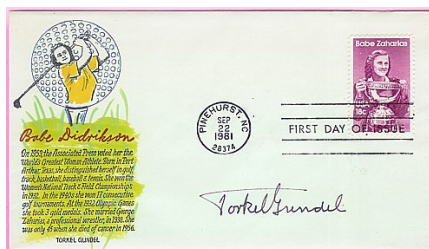 Babe Didrikson
On 1950, the Associated Press voted her the
World's Greatest Woman Athlete. Born in Port
Arthur, Texas, she distinguished herself in golf,
track, basketball, baseball & tennis. She won the
Women's National Track & Field Championships
in 1932. In the 1940s she won 17 consecutive
golf tournaments. At the 1932 Olympic Games
she took 3 gold medals. She married George
Zaharias, a professional wrestler, in 1938. She
was only 45 when she died of cancer in 1956.
TORKEL GUNDEL
PINEHURST, NC
SEP
22
1981
28374
Babe Zaharias
USA
18c
FIRST DAY OF ISSUE
Torkel Gundel